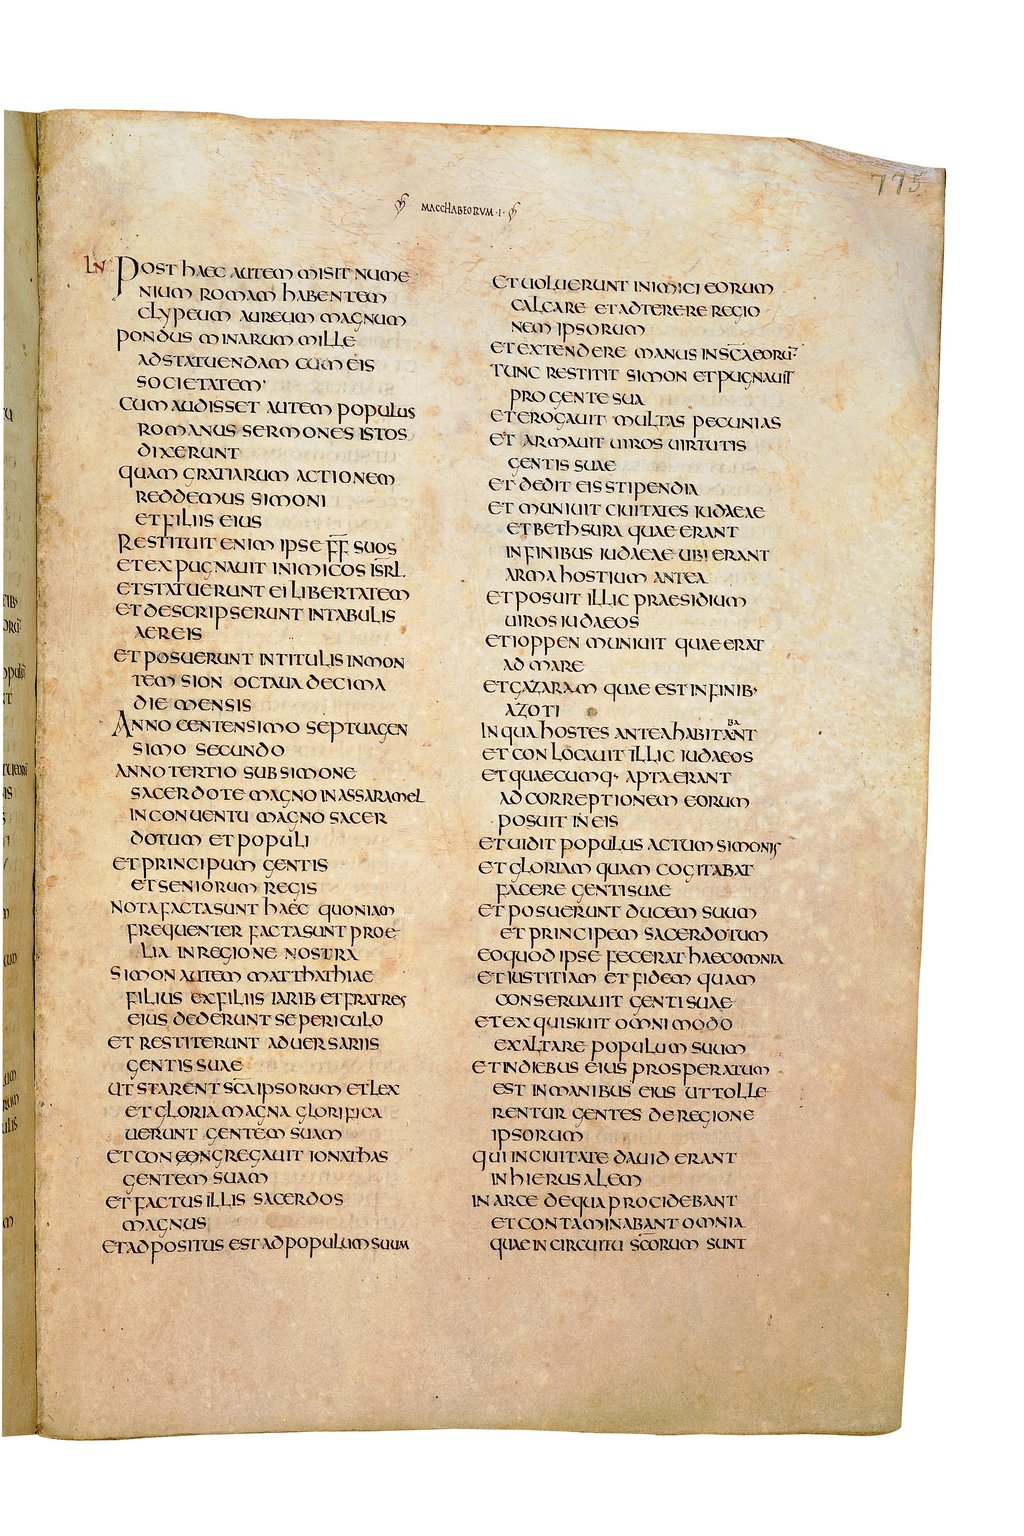 775.
MACCHABEORUM · I ·
LIV
POST HAEC AUTEM MISIT NUME
NIUM ROMAM HABENTEM
CLYPEUM AUREUM MAGNUM
PONDUS MINARUM MILLE
ADSTATUENDAM CUM EIS
SOCIETATEM
CUM AUDISSET AUTEM POPULUS
ROMANUS SERMONES ISTOS
DIXERUNT
QUAM GRATIARUM ACTIONEM
REDDEMUS SIMONI
ET FILIIS EIUS
RESTITUIT ENIM IPSE F̅F̅ SUOS
ET EXPUGNAUIT INIMICOS ISR̅L.
ET STATUERUNT EI LIBERTATEM
ET DESCRIPSERUNT IN TABULIS
AEREIS
ET POSUERUNT IN TITULIS IN MON
TEM SION OCTAUA DECIMA
DIE MENSIS
ANNO CENTENSIMO SEPTUAGEN
SIMO SECUNDO
ANNO TERTIO SUB SIMONE
SACERDOTE MAGNO IN ASSARAMEL
IN CONUENTU MAGNO SACER
DOTUM ET POPULI
ET PRINCIPUM GENTIS
ET SENIORUM REGIS
NOTA FACTA SUNT HAEC QUONIAM
FREQUENTER FACTA SUNT PROE
LIA IN REGIONE NOSTRA
SIMON AUTEM MATTHATHIAE
FILIUS EX FILIIS IARIB ET FRATRES
EIUS DEDERUNT SE PERICULO
ET RESTITERUNT ADUERSARIIS
GENTIS SUAE
UT STARENT SC̅A IPSORUM ET LEX
ET GLORIA MAGNA GLORIFICA
UERUNT GENTEM SUAM
ET CONGREGAUIT IONATHAS
GENTEM SUAM
ET FACTUS ILLIS SACERDOS
MAGNUS
ET ADPOSITUS EST AD POPULUM SUUM
ET UOLUERUNT INIMICI EORUM
CALCARE ET ADTERERE REGIO
NEM IPSORUM
ET EXTENDERE MANUS IN SC̅A EORU̅
TUNC RESTITIT SIMON ET PUGNAUIT
PRO GENTE SUA
ET EROGAUIT MULTAS PECUNIAS
ET ARMAUIT UIROS UIRTUTIS
GENTIS SUAE
ET DEDIT EIS STIPENDIA
ET MUNIUIT CIUITATES IUDAEAE
ET BETHSURA QUAE ERANT
IN FINIBUS IUDAEAE UBI ERANT
ARMA HOSTIUM ANTEA
ET POSUIT ILLIC PRAESIDIUM
UIROS IUDAEOS
ET IOPPEN MUNIUIT QUAE ERAT
AD MARE
ET GAZARAM QUAE EST IN FINIB·
AZOTI
IN QUA HOSTES ANTEA HABITABANT
ET CONLOCAUIT ILLIC IUDAEOS
ET QUAECUMQ· APTA ERANT
AD CORREPTIONEM EORUM
POSUIT IN EIS
ET UIDIT POPULUS ACTUM SIMONIS
ET GLORIAM QUAM COGITABAT
FACERE GENTI SUAE
ET POSUERUNT DUCEM SUUM
ET PRINCIPEM SACERDOTUM
EO QUOD IPSE FECERAT HAEC OMNIA
ET IUSTITIAM ET FIDEM QUAM
CONSERUAUIT GENTI SUAE
ET EXQUISIUIT OMNI MODO
EXALTARE POPULUM SUUM
ET IN DIEBUS EIUS PROSPERATUM
EST IN MANIBUS EIUS UT TOLLE
RENTUR GENTES DE REGIONE
IPSORUM
QUI IN CIUITATE DAUID ERANT
IN HIERUSALEM
IN ARCE DE QUA PROCIDEBANT
ET CONTAMINABANT OMNIA
QUAE IN CIRCUITU SC̅ORUM SUNT